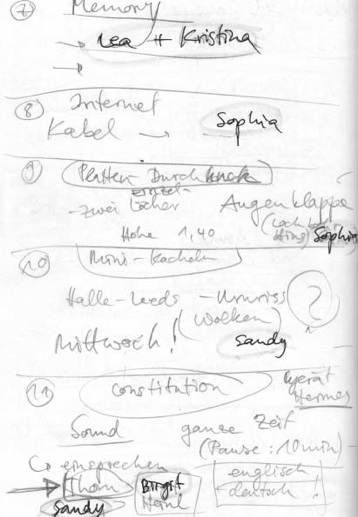 7 Memory
→ Lea + Kristina
→
8 Internet
Kabel → Sophia
9 Platten Durch
- zwei Löcher Augenklappe
Höhe 1,40 Sophia
10 Mini-Kacheln
Halle-Leeds - Umriss ?
(Wolken)
Mittwoch! Sandy
11 constitution
Hermes
Sound ganze Zeit
(Pause: 10 min)
einsprechen englisch
→ Thorn Birgit deutsch!
Sandy